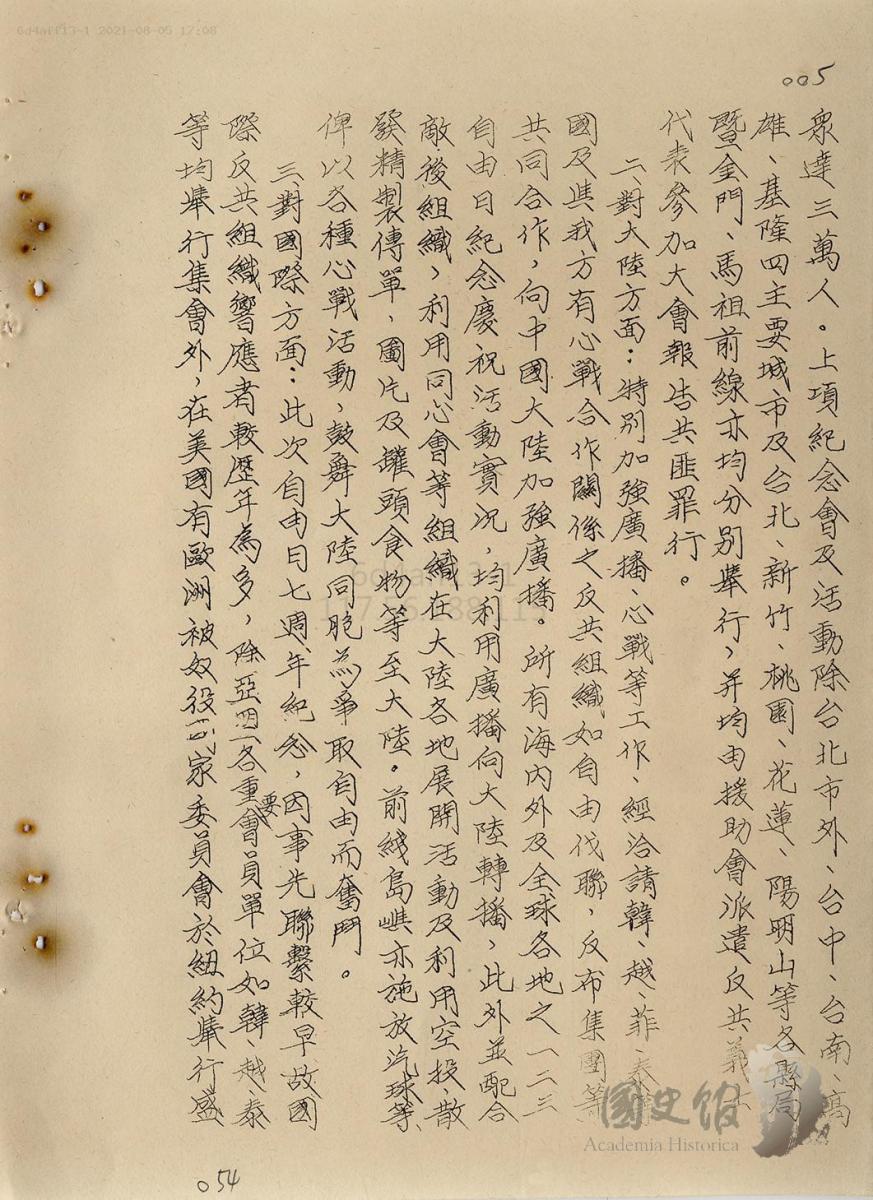 6d4aff13-1 2021-08-05 17:08
005
眾達三萬人。上項紀念會及活動除台北市外、台中、台南、高
雄、基隆四主要城市及台北、新竹、桃園、花蓮、陽明山等各縣局
暨金門、馬祖前線亦均分別舉行，并均由援助會派遣反共義士
代表參加大會報告共匪罪行。
二、對大陸方面：特別加強廣播、心戰等工作、經洽請韓、越、菲、泰
國及與我方有心戰合作關係之反共組織如自由伐聯，反布集團等
共同合作，向中國大陸加強廣播。所有海內外及全球各地之一二三
自由日紀念慶祝活動實況，均利用廣播向大陸轉播，此外並配合
敵後組織，利用同心會等組織在大陸各地展開活動及利用空投、散
發精製傳單、圖片及罐頭食物等至大陸。前綫島嶼亦施放汽球等
俾以各種心戰活動，鼓舞大陸同胞為爭取自由而奮鬥。
三、對國際方面：此次自由日七週年紀念，因事先聯繫較早故國
際反共組織響應者較歷年為多，除亞盟各重要會員單位如韓、越、泰
等均舉行集會外，在美國有歐洲被奴役國家委員會於紐約舉行盛
054
國史館
Academia Historica
6d4aff13-1